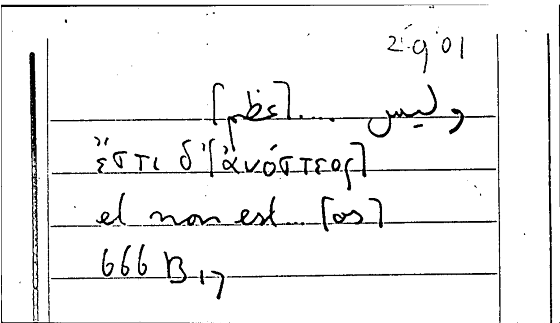 2901
.... وليس
ἔστι δ'[ἀνόστεος]
et non est... [os]
666 B 17